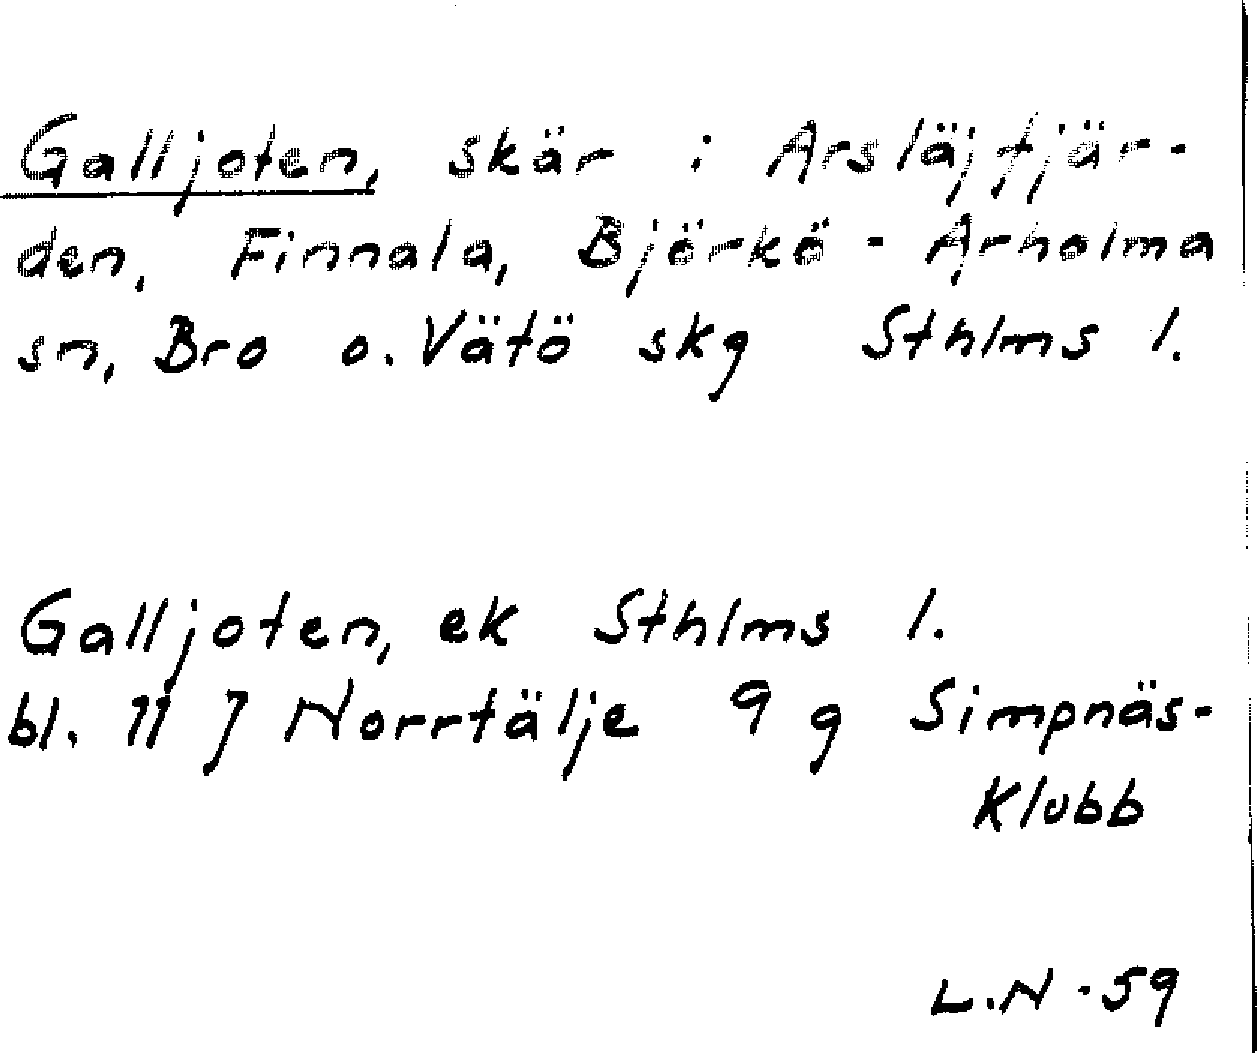 Galljoten, skär i Arsläjfjär-
den, Finnala, Björkö - Arholma
sn, Bro o. Vätö skg Sthlms l.
Galljoten, ek Sthlms l.
bl. 11 J Norrtälje 9 g Simpnäs-
Klubb
L.N -59